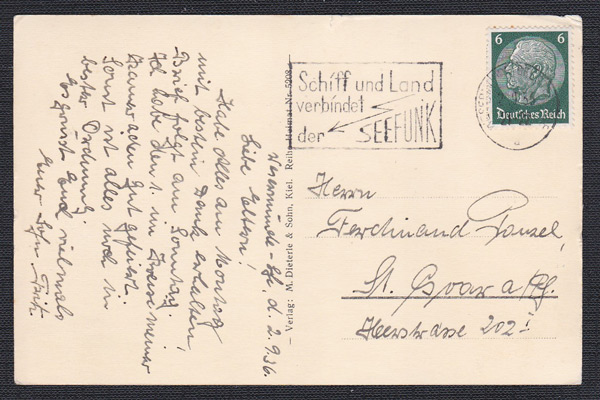 Warnemünde - Hf, d. 2.9.36.
Liebe Eltern!
Habe Alles am Montag
mit bestem Dank erhalten,
Brief folgt am Sonntag.
Ich habe den 1. im Kreise meiner
Kameraden gut gefeiert.
Sonst ist alles noch in
bester Ordnung.
Es grüsst Euch vielmals
Euer Sohn Fritz.
– Verlag: M. Dieterle & Sohn, Kiel. Reihe Heimat Nr. 5208
Schiff und Land
verbindet
der SEEFUNK
6 6
Deutsches Reich
Herrn
Ferdinand
St. Goar a/Rh.
Heerstrasse 202